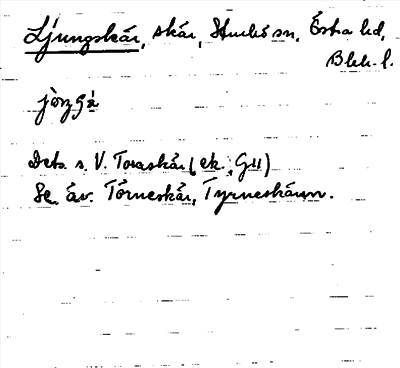 Ljungskär, skär, Sturkö sn, Östra hd,
Blek. l.
Dets. s. V. Toraskär (ek., G11)
Se äv. Törneskär, Tyrneskären.